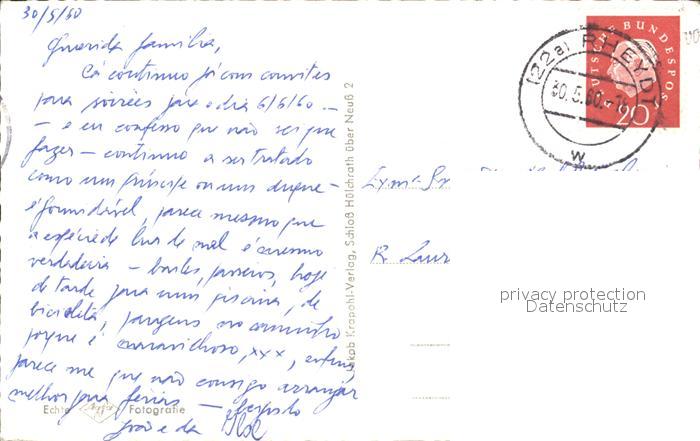 30/5/60
Querida família,
Cá continuo já com convites
para soirées para o dia 6/6/60 —
— e eu confesso que não sei que
fazer — continuo a ser tratado
como um príncipe ou um duque —
é formidável, parece mesmo que
a espécie de lua de mel é mesmo
verdadeira — bailes, passeios, hoje
de tarde para uma piscina, de
bicicleta,
porque é maravilhoso, xxx,
parece me que não consigo arranjar
melhor para férias —
João e da
Echte Agfa Fotografie
Jakob Krapohl-Verlag, Schloß Hülchrath über Neuß 2
DEUTSCHE BUNDESPOST
20
(22a) RHEYDT
30.5.60
w
Exmo Sr
R Laur
privacy protection
Datenschutz